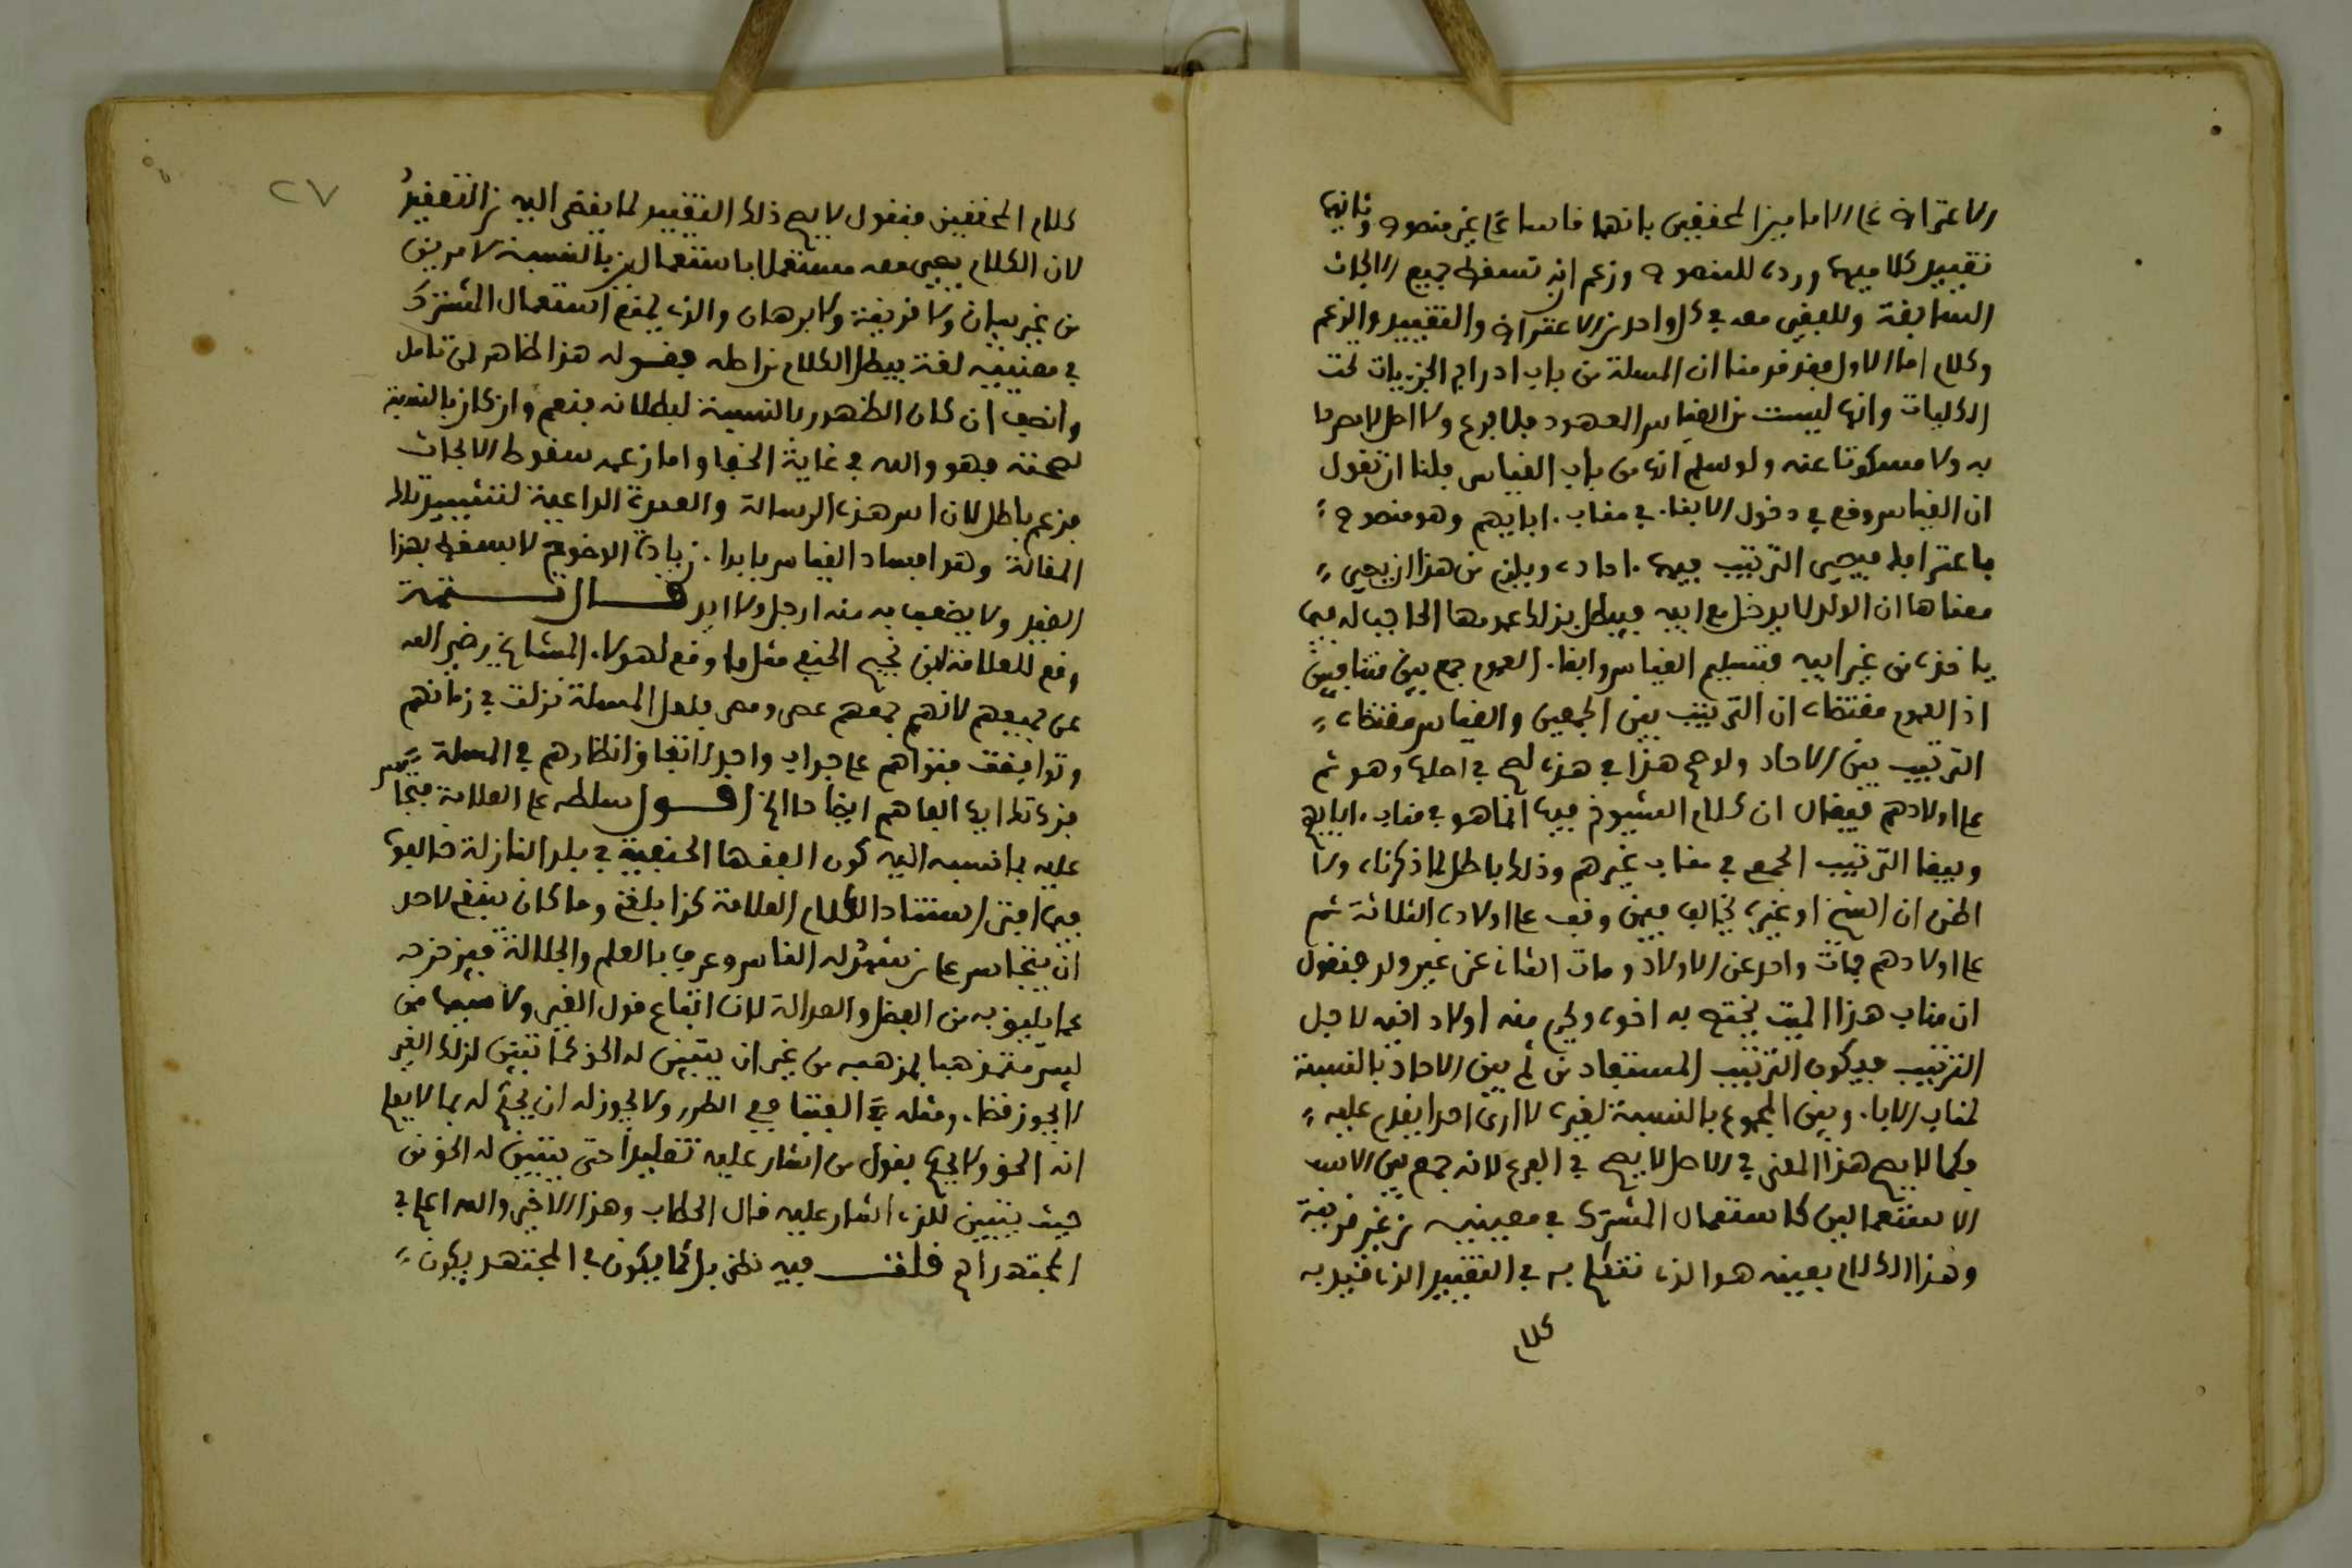 الاعتراض على الامامين المحققين بانهما قاسا على غير منصوص وثانيها
تقييد كلاميهما ورده للمنصوص وزعم انه تسقط جميع الابحاث
السابقة وللبقي معه في كل واحد من الاعتراض والتقييد والزعم
وكلام اما الاول فقد قدمنا ان المسلة من باب ادراج الجزييات تحت
الكليات وانها ليست من القياس المعهود فلا فرع ولا اصل لا مصرحا
به ولا مسكوتا عنه ولو سلم انها من باب القياس فلنا ان نقول
ان القياس وقع في دخول الابناء في مناب ابايهم وهو منصوص
باعترافه فيجيى الترتيب فيها احاده ويلزم من هذا ان يجيى
معناها ان الولد لا يدخل مع ابيه فيبطل بذلك عمومها الحاجب له فيما
ياخذه من غير ابيه فتسليم القياس وابقاء العموم جمع بين متنافيين
اذ العموم مقتضاه ان الترتيب بين الجمعين والقياس مقتضاه
الترتيب بين الاحاد ولو صح هذا في هذه لصح في اصلها وهو ثم
على اولادهم فيقال ان كلام الشيوخ فيها انما هو في مناب ابايهم
ويبقا الترتيب الجمع في مناب غيرهم وذلك باطل لما ذكرناه ولا
اظن ان الشيخ او غيره يخالف فيمن وقف على اولاده الثلاثة ثم
على اولادهم فمات واحد عن الاولاد ومات الثاني عن غير ولد فنقول
ان مناب هذا الميت يختص به اخوه ويحرم منه اولاد اخيه لاجل
الترتيب فيكون الترتيب المستفاد من ثم بين الاحاد بالنسبة
لمناب الاباء وبين المجموع بالنسبة لغيره لا ارى احدا يقدم عليه
فكما لا يصح هذا المعنى في الاصل لا يصح في الفرع لانه جمع بين
الاستعمالين كاستعمال المشترك في معنييه من غير قرينة
وهذا الكلام بعينه هو الذي نتكلم به في التقييد الذي قيد به
كلام
٢٧
كلام المحققين فنقول لا يصح ذلك التقييد لما يفضى اليه من التعقيد
لان الكلام يجيى معه مستعملا باستعمالين بالنسبة لامرين
من غير بيان ولا قرينة ولا برهان والذي يمنع استعمال المشترك
في معنييه لغة يبطل الكلام من اصله فقوله هذا ظاهر لمن تامل
وانصف ان كان الظهور بالنسبة لبطلانه فنعم وان كان بالنسبة
لصحته فهو والله في غاية الخفا واما زعمه سقوط الابحاث
فزعم باطل لان اس هذه الرسالة والعمدة الداعية لتشييد تلك
المقالة وهو افساد القياس بابداء زيادة الوضوح لا يسقط بهذا
القيد ولا يضعف به منه ارجل ولا ايد قال تتمة
وقع للعلامة ابن نجيم الحنفي مثل ما وقع لهولاء المشايخ رضي الله
عن جميعهم لانهم جمعهم عصر ومصر فلعل المسلة نزلت في زمانهم
وتوافقت فتواهم على جواب واحد لاتفاق انظارهم في المسلة
جزءتك ايها الفاهم ايضا حا الخ اقول سلطه على العلامة
عليه بما نسبه اليه كون الفقها الحنفية في بلد النازلة خالفوه
فيما افتى استنادا لكلام العلامة كذا بلغني وما كان ينبغي لاحد
ان يتجاسر على من شهد له الناس وعرف بالعلم والجلالة فيزحزحه
عما يليق به من الفضل والعدالة لان اتباع قول الغير ولا سيما ممن
ليس متمذهبا بمذهبه من غير ان يتبين له الحق كما تبين لذلك الغير
لا يجوز قضاء ومثله في الفتيا ففي الطرر ولا يجوز له ان يحكم له بما لا يعلم
انه الحق ولا يحكم بقول من اشار عليه تقليدا حتى يتبين له الحق من
حيث يتبين للذي اشار عليه قال الحطاب وهذا الاخير والله اعلم في
المجتهد اه قلت فيه نظر بل كما يكون في المجتهد يكون